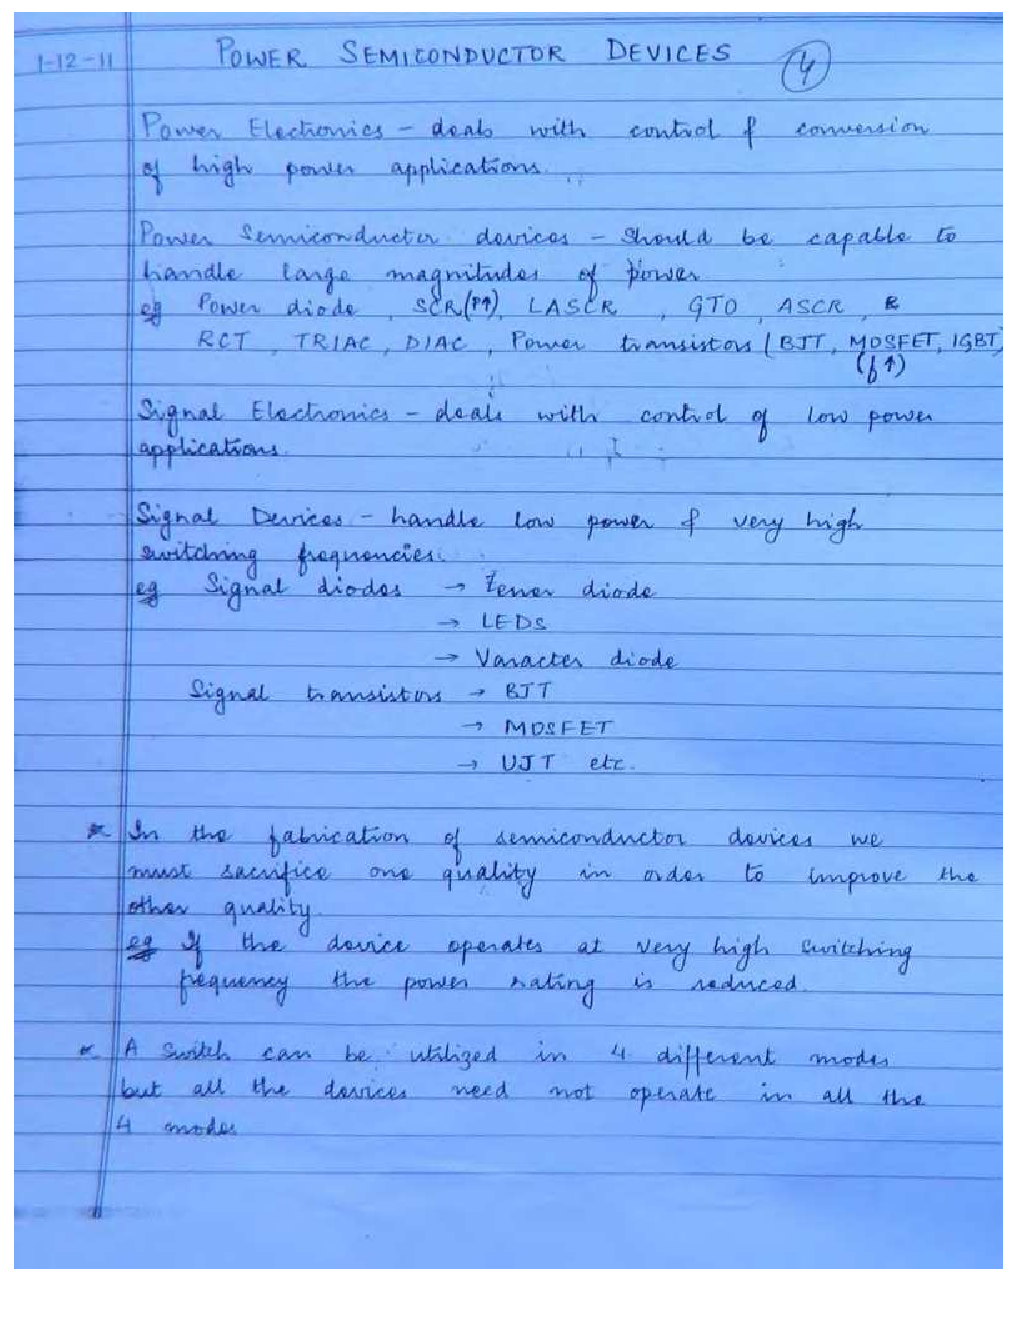 1-12-11 POWER SEMICONDUCTOR DEVICES 4
Power Electronics - deals with control & conversion
of high power applications.
Power Semiconductor devices - Should be capable to
handle large magnitudes of power
eg Power diode, SCR(P↑), LASCR, GTO, ASCR,
RCT, TRIAC, DIAC, Power transistors (BJT, MOSFET, IGBT)
(f↑)
Signal Electronics - deals with control of low power
applications.
Signal Devices - handle low power & very high
switching frequencies.
eg Signal diodes → Zener diode
→ LEDS
→ Varacter diode
Signal transistors → BJT
→ MOSFET
→ UJT etc.
* In the fabrication of semiconductor devices we
must sacrifice one quality in order to improve the
other quality.
eg If the device operates at very high switching
frequency the power rating is reduced.
* A switch can be utilized in 4 different modes
but all the devices need not operate in all the
4 modes